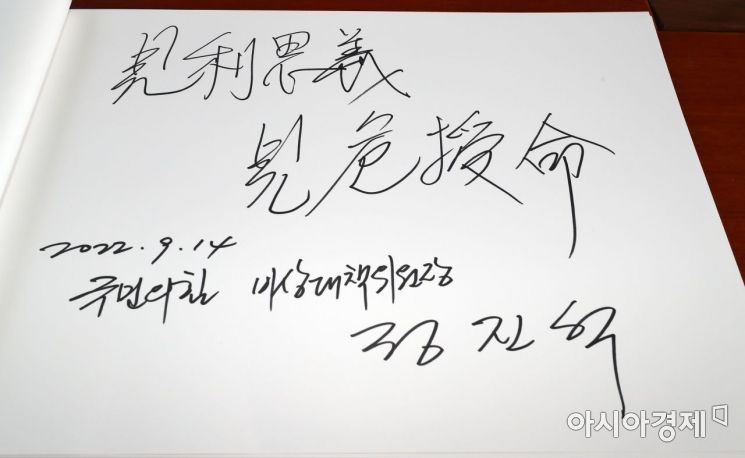 見利思義
見危授命
2022.9.14
국민의힘 비상대책위원장
정진석
아시아경제